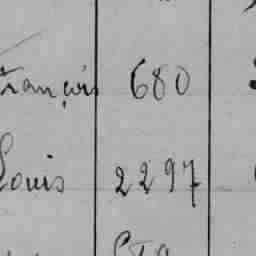 François 680
Louis 2297